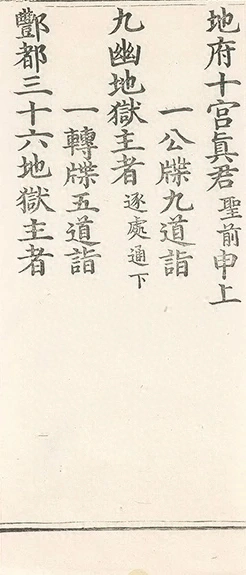 地府十宫真君聖前申上
一公牒九道詣
九幽地獄主者逐處通下
一轉牒五道詣
酆都三十六地獄主者